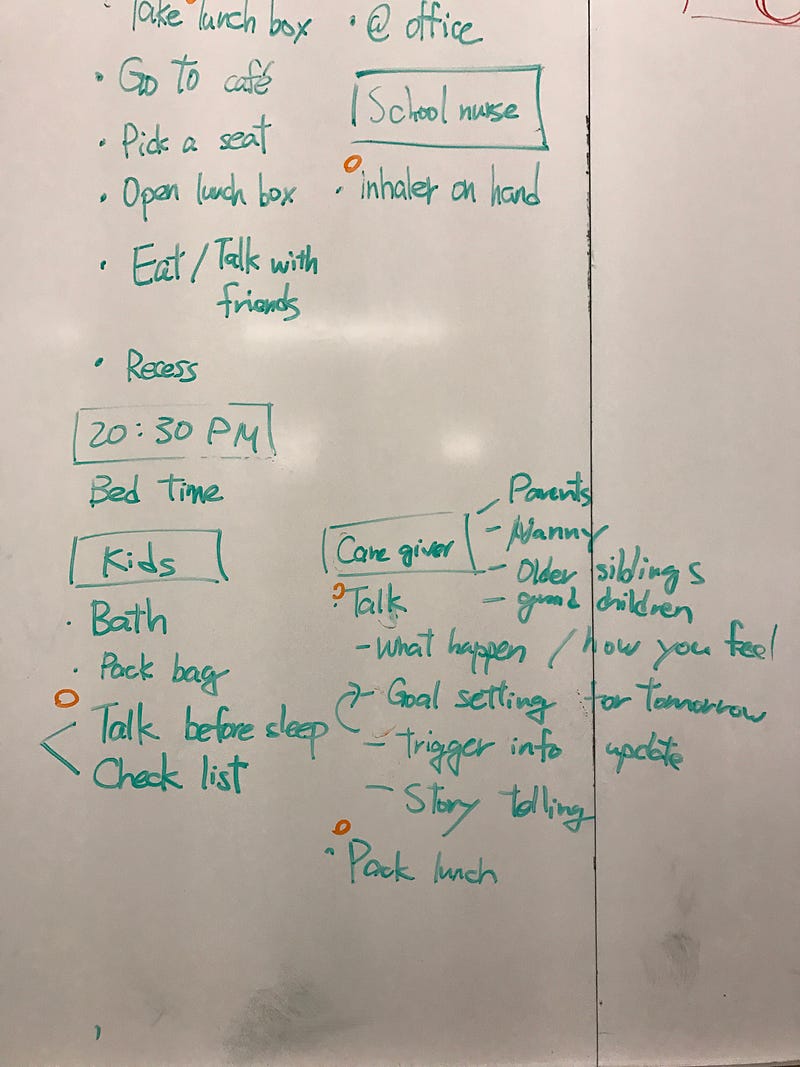 Take lunch box
• Go to café
• Pick a seat
• Open lunch box
• Eat / Talk with
friends
• Recess
• @ office
School nurse
• inhaler on hand
20:30 PM
Bed time
Kids
• Bath
• Pack bag
Talk before sleep
Check list
Care giver
– Parents
– Nanny
– Older siblings
– grand children
• Talk
– What happen / how you feel
– Goal setting for tomorrow
– trigger info update
– Story telling
• Pack lunch